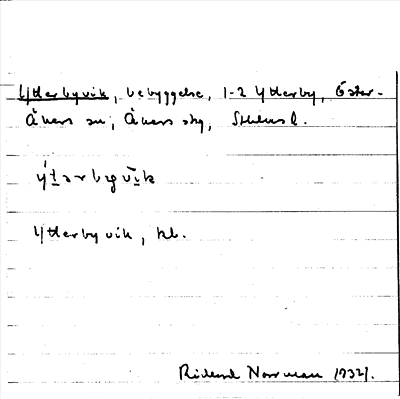 Ytterbyvik, bebyggelse, 1-2 Ytterby, Öster-
Åkers sn, Åkers skg, Sthlms l.
Ytterbyvik, kb.
Rickard Norrman 1932.